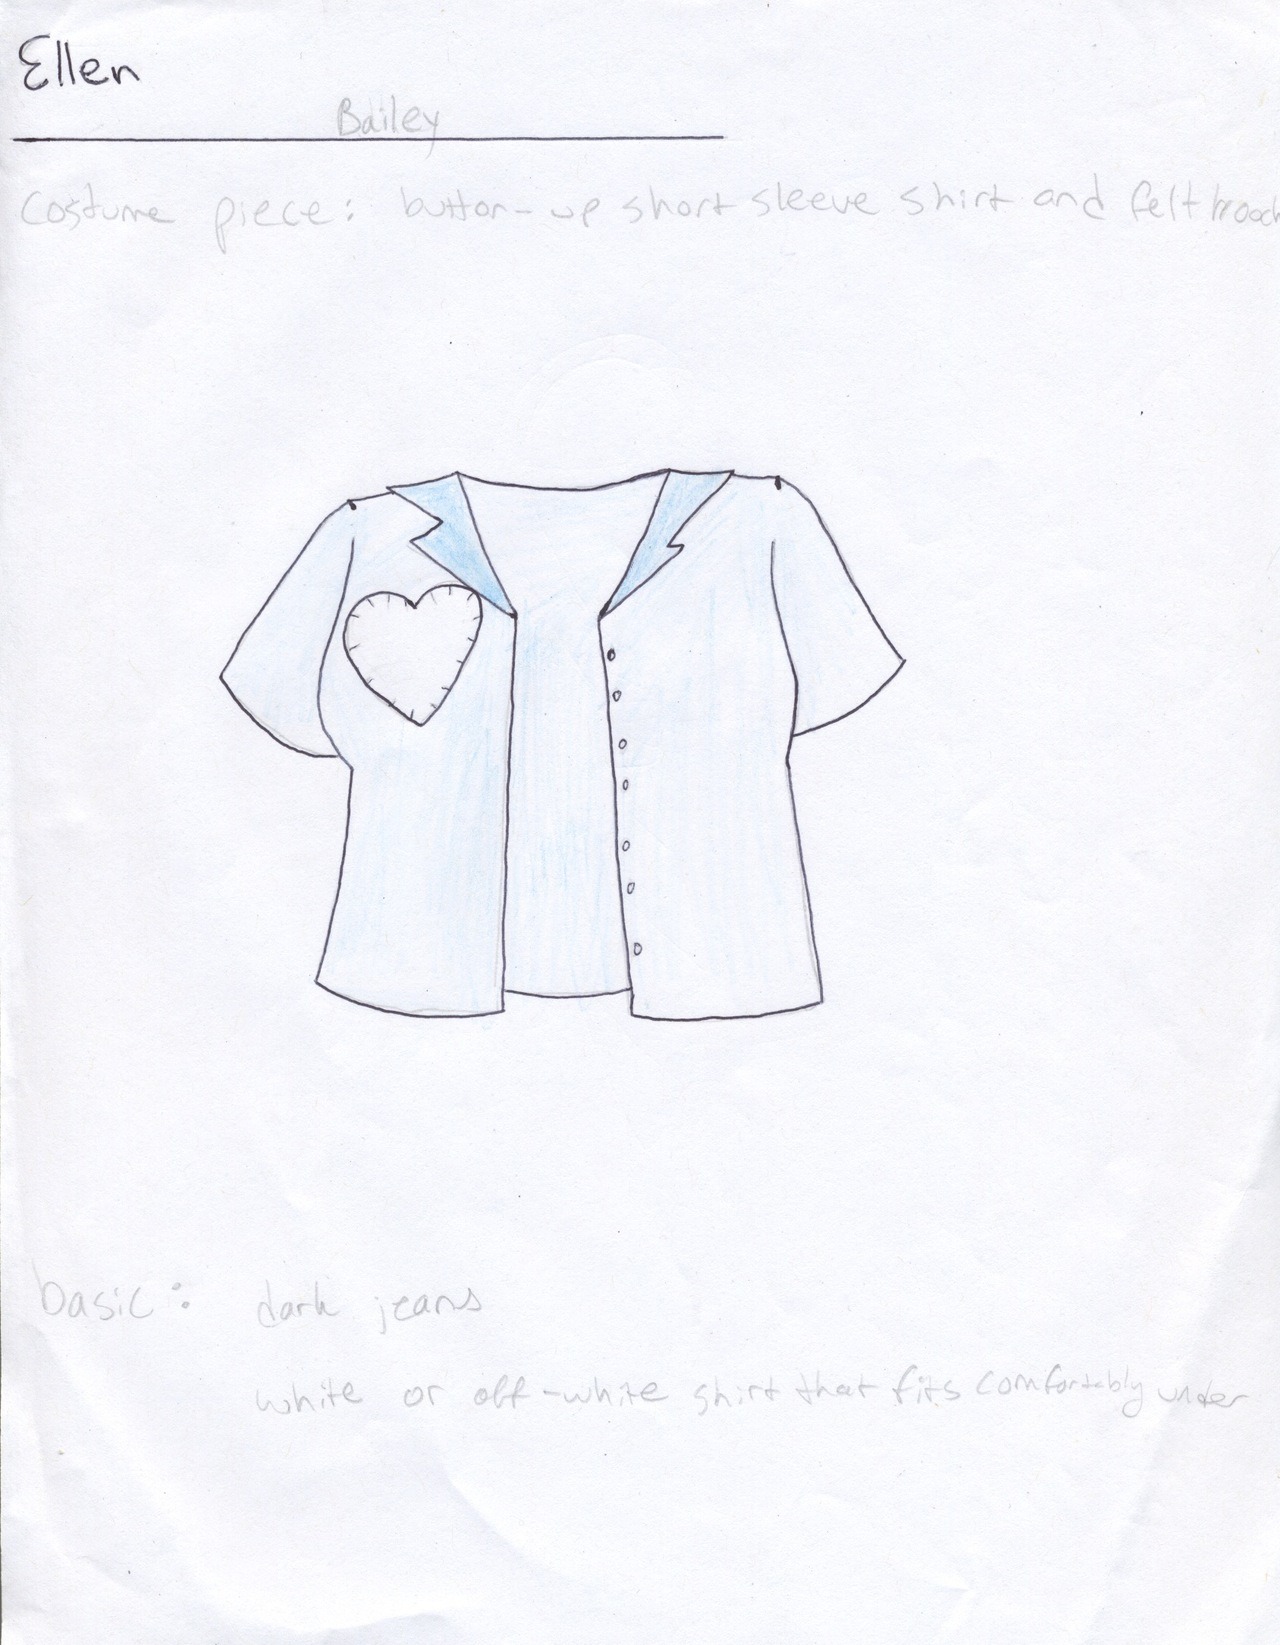 Ellen
Bailey
costume piece: button-up short sleeve shirt and felt brooch
basic: dark jeans
white or off-white shirt that fits comfortably under